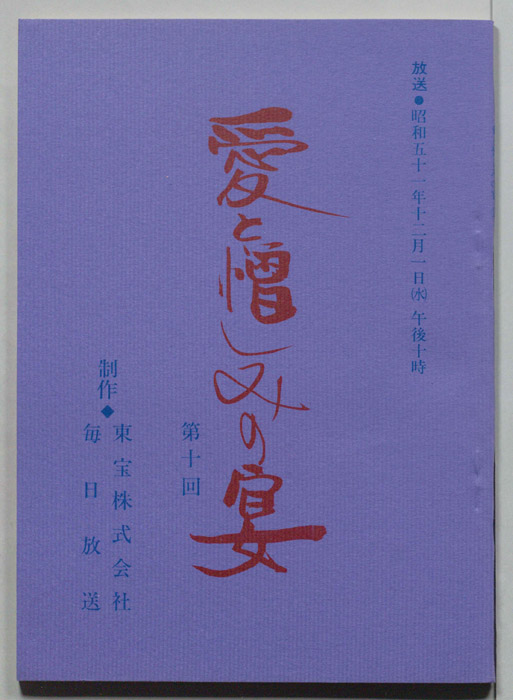 放送●昭和五十一年十二月一日㈬ 午後十時
愛と憎しみの宴
第十回
制作◆
東宝株式会社
毎日放送